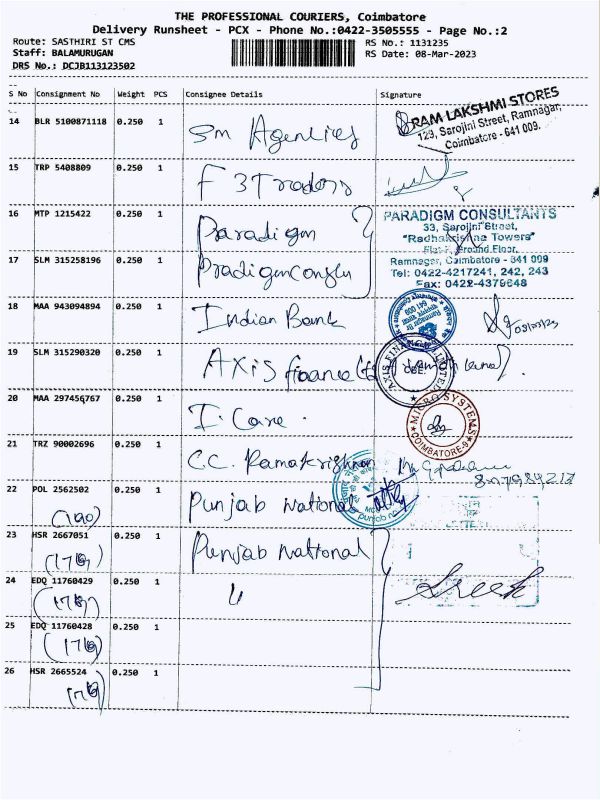 THE PROFESSIONAL COURIERS, Coimbatore
Delivery Runsheet - PCX - Phone No.:0422-3505555 - Page No.:2
Route: SASTHIRI ST CMS
RS No.: 1131235
Staff: BALAMURUGAN
RS Date: 08-Mar-2023
DRS No.: DCJB113123502
S No Consignment No Weight PCS Consignee Details Signature
14 BLR 5100871118 0.250 1 Sm Agencies
SRI RAM LAKSHMI STORES
129, Sarojini Street, Ramnagar,
Coimbatore - 641 009.
15 TRP 5408809 0.250 1 F 3 Traders
16 MTP 1215422 0.250 1 Paradigm
PARADIGM CONSULTANTS
33, Sarojini Street,
"Radhakrishna Towers"
Flat-F, Ground Floor,
Ramnagar, Coimbatore - 641 009
Tel: 0422-4217241, 242, 243
Fax: 0422-4379648
17 SLM 315258196 0.250 1
18 MAA 943094894 0.250 1 Indian Bank
19 SLM 315290320 0.250 1 Axis finance
AXIS FINANCE LIMITED
CBE.
20 MAA 297456767 0.250 1 I. Care.
MICRO SYSTEMS
COIMBATORE-9
21 TRZ 90002696 0.250 1 C.C. Ramakrishnan
22 POL 2562502 0.250 1 Punjab National
(190)
23 HSR 2667051 0.250 1 Punjab National
24 EDQ 11760429 0.250 1 "
25 EDQ 11760428 0.250 1
26 HSR 2665524 0.250 1